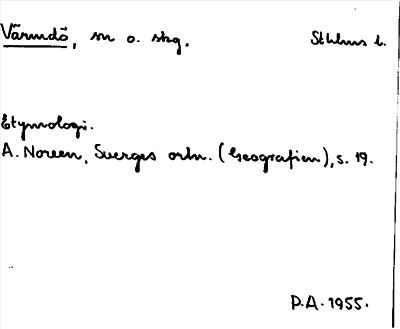 Värmdö, sn o. skg. Sthlms l.
Etymologi.
A. Noreen, Sverges ortn. (Geografien), s. 19.
P.A. 1955.